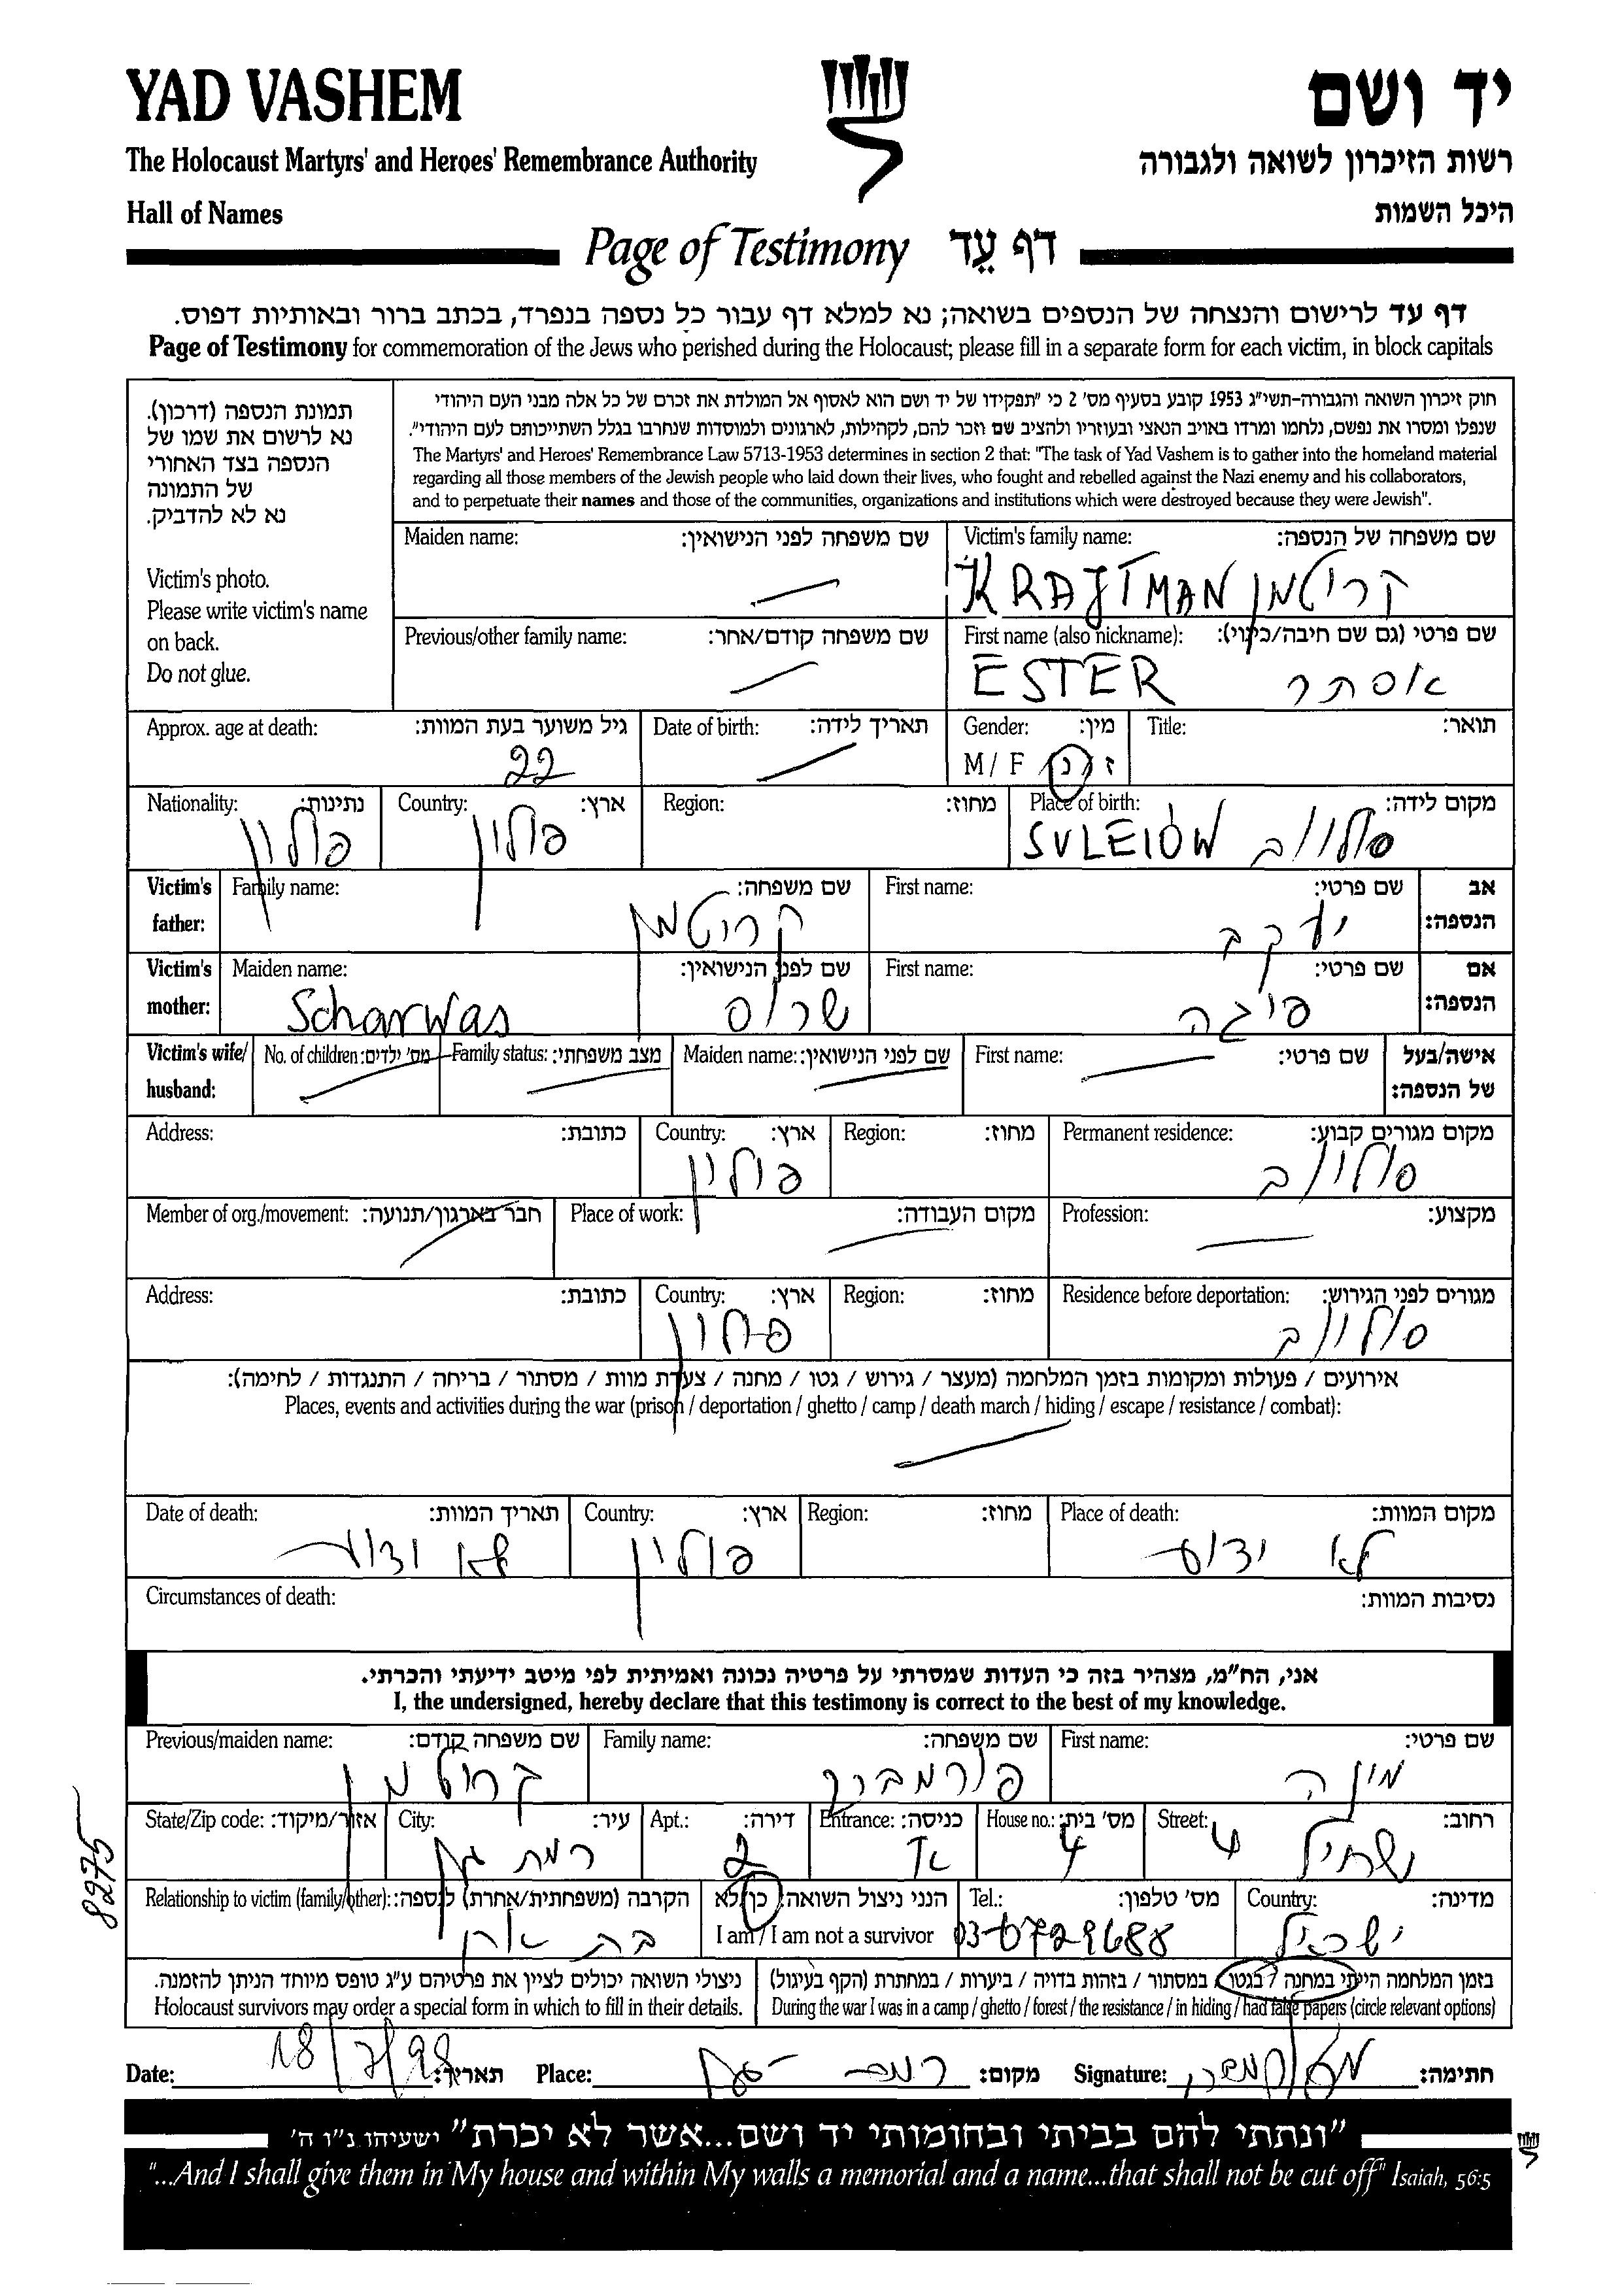 YAD VASHEM
יד ושם
The Holocaust Martyrs' and Heroes' Remembrance Authority
רשות הזיכרון לשואה ולגבורה
Hall of Names
היכל השמות
Page of Testimony דף עֵד
דף עד לרישום והנצחה של הנספים בשואה; נא למלא דף עבור כל נספה בנפרד, בכתב ברור ובאותיות דפוס.
Page of Testimony for commemoration of the Jews who perished during the Holocaust; please fill in a separate form for each victim, in block capitals
תמונת הנספה (דרכון).
נא לרשום את שמו של
הנספה בצד האחורי
של התמונה
נא לא להדביק.
Victim's photo.
Please write victim's name
on back.
Do not glue.
חוק זיכרון השואה והגבורה-תשי"ג 1953 קובע בסעיף מס' 2 כי "תפקידו של יד ושם הוא לאסוף אל המולדת את זכרם של כל אלה מבני העם היהודי
שנפלו ומסרו את נפשם, נלחמו ומרדו באויב הנאצי ובעוזריו ולהציב שם וזכר להם, לקהילות, לארגונים ולמוסדות שנחרבו בגלל השתייכותם לעם היהודי".
The Martyrs' and Heroes' Remembrance Law 5713-1953 determines in section 2 that: "The task of Yad Vashem is to gather into the homeland material
regarding all those members of the Jewish people who laid down their lives, who fought and rebelled against the Nazi enemy and his collaborators,
and to perpetuate their names and those of the communities, organizations and institutions which were destroyed because they were Jewish".
Maiden name: שם משפחה לפני הנישואין: Victim's family name: שם משפחה של הנספה:
KRAJTMAN קריטמן
Previous/other family name: שם משפחה קודם/אחר: First name (also nickname): שם פרטי (גם שם חיבה/כינוי):
ESTER אסתר
Approx. age at death: גיל משוער בעת המוות: Date of birth: תאריך לידה: Gender: מין: Title: תואר:
22 M / F ז / נ
Nationality: נתינות: Country: ארץ: Region: מחוז: Place of birth: מקום לידה:
פולין פולין SULEIOW סולוב
Victim's father: Family name: שם משפחה: First name: שם פרטי: אב הנספה:
קריטמן יעקב
Victim's mother: Maiden name: שם לפני הנישואין: First name: שם פרטי: אם הנספה:
Scharwas פיגה
Victim's wife/ husband: No. of children: מס' ילדים: Family status: מצב משפחתי: Maiden name: שם לפני הנישואין: First name: שם פרטי: אישה/בעל של הנספה:
Address: כתובת: Country: ארץ: Region: מחוז: Permanent residence: מקום מגורים קבוע:
פולין סוליוב
Member of org./movement: חבר בארגון/תנועה: Place of work: מקום העבודה: Profession: מקצוע:
Address: כתובת: Country: ארץ: Region: מחוז: Residence before deportation: מגורים לפני הגירוש:
פולין סוליוב
אירועים / פעולות ומקומות בזמן המלחמה (מעצר / גירוש / גטו / מחנה / צעדת מוות / מסתור / בריחה / התנגדות / לחימה):
Places, events and activities during the war (prison / deportation / ghetto / camp / death march / hiding / escape / resistance / combat):
Date of death: תאריך המוות: Country: ארץ: Region: מחוז: Place of death: מקום המוות:
לא ידוע פולין לא ידוע
Circumstances of death: נסיבות המוות:
אני, הח"מ, מצהיר בזה כי העדות שמסרתי על פרטיה נכונה ואמיתית לפי מיטב ידיעתי והכרתי.
I, the undersigned, hereby declare that this testimony is correct to the best of my knowledge.
Previous/maiden name: שם משפחה קודם: Family name: שם משפחה: First name: שם פרטי:
קריטמן מינה
State/Zip code: אזור/מיקוד: City: עיר: Apt.: דירה: Entrance: כניסה: House no.: מס' בית: Street: רחוב:
רמת גן 2 4
Relationship to victim (family/other): הקרבה (משפחתית/אחרת) לנספה: הנני ניצול השואה: כן/לא Tel.: מס' טלפון: Country: מדינה:
I am / I am not a survivor 03-6729688 ישראל
ניצולי השואה יכולים לציין את פרטיהם ע"ג טופס מיוחד הניתן להזמנה. בזמן המלחמה הייתי במחנה / בגטו / במסתור / בזהות בדויה / ביערות / במחתרת (הקף בעיגול)
Holocaust survivors may order a special form in which to fill in their details. During the war I was in a camp / ghetto / forest / the resistance / in hiding / had false papers (circle relevant options)
Date: 18/7/98 תאריך: Place: רמת-גן מקום: Signature: חתימה:
8275
"ונתתי להם בביתי ובחומותי יד ושם...אשר לא יכרת" ישעיהו נ"ו ה'
"...And I shall give them in My house and within My walls a memorial and a name...that shall not be cut off" Isaiah, 56:5